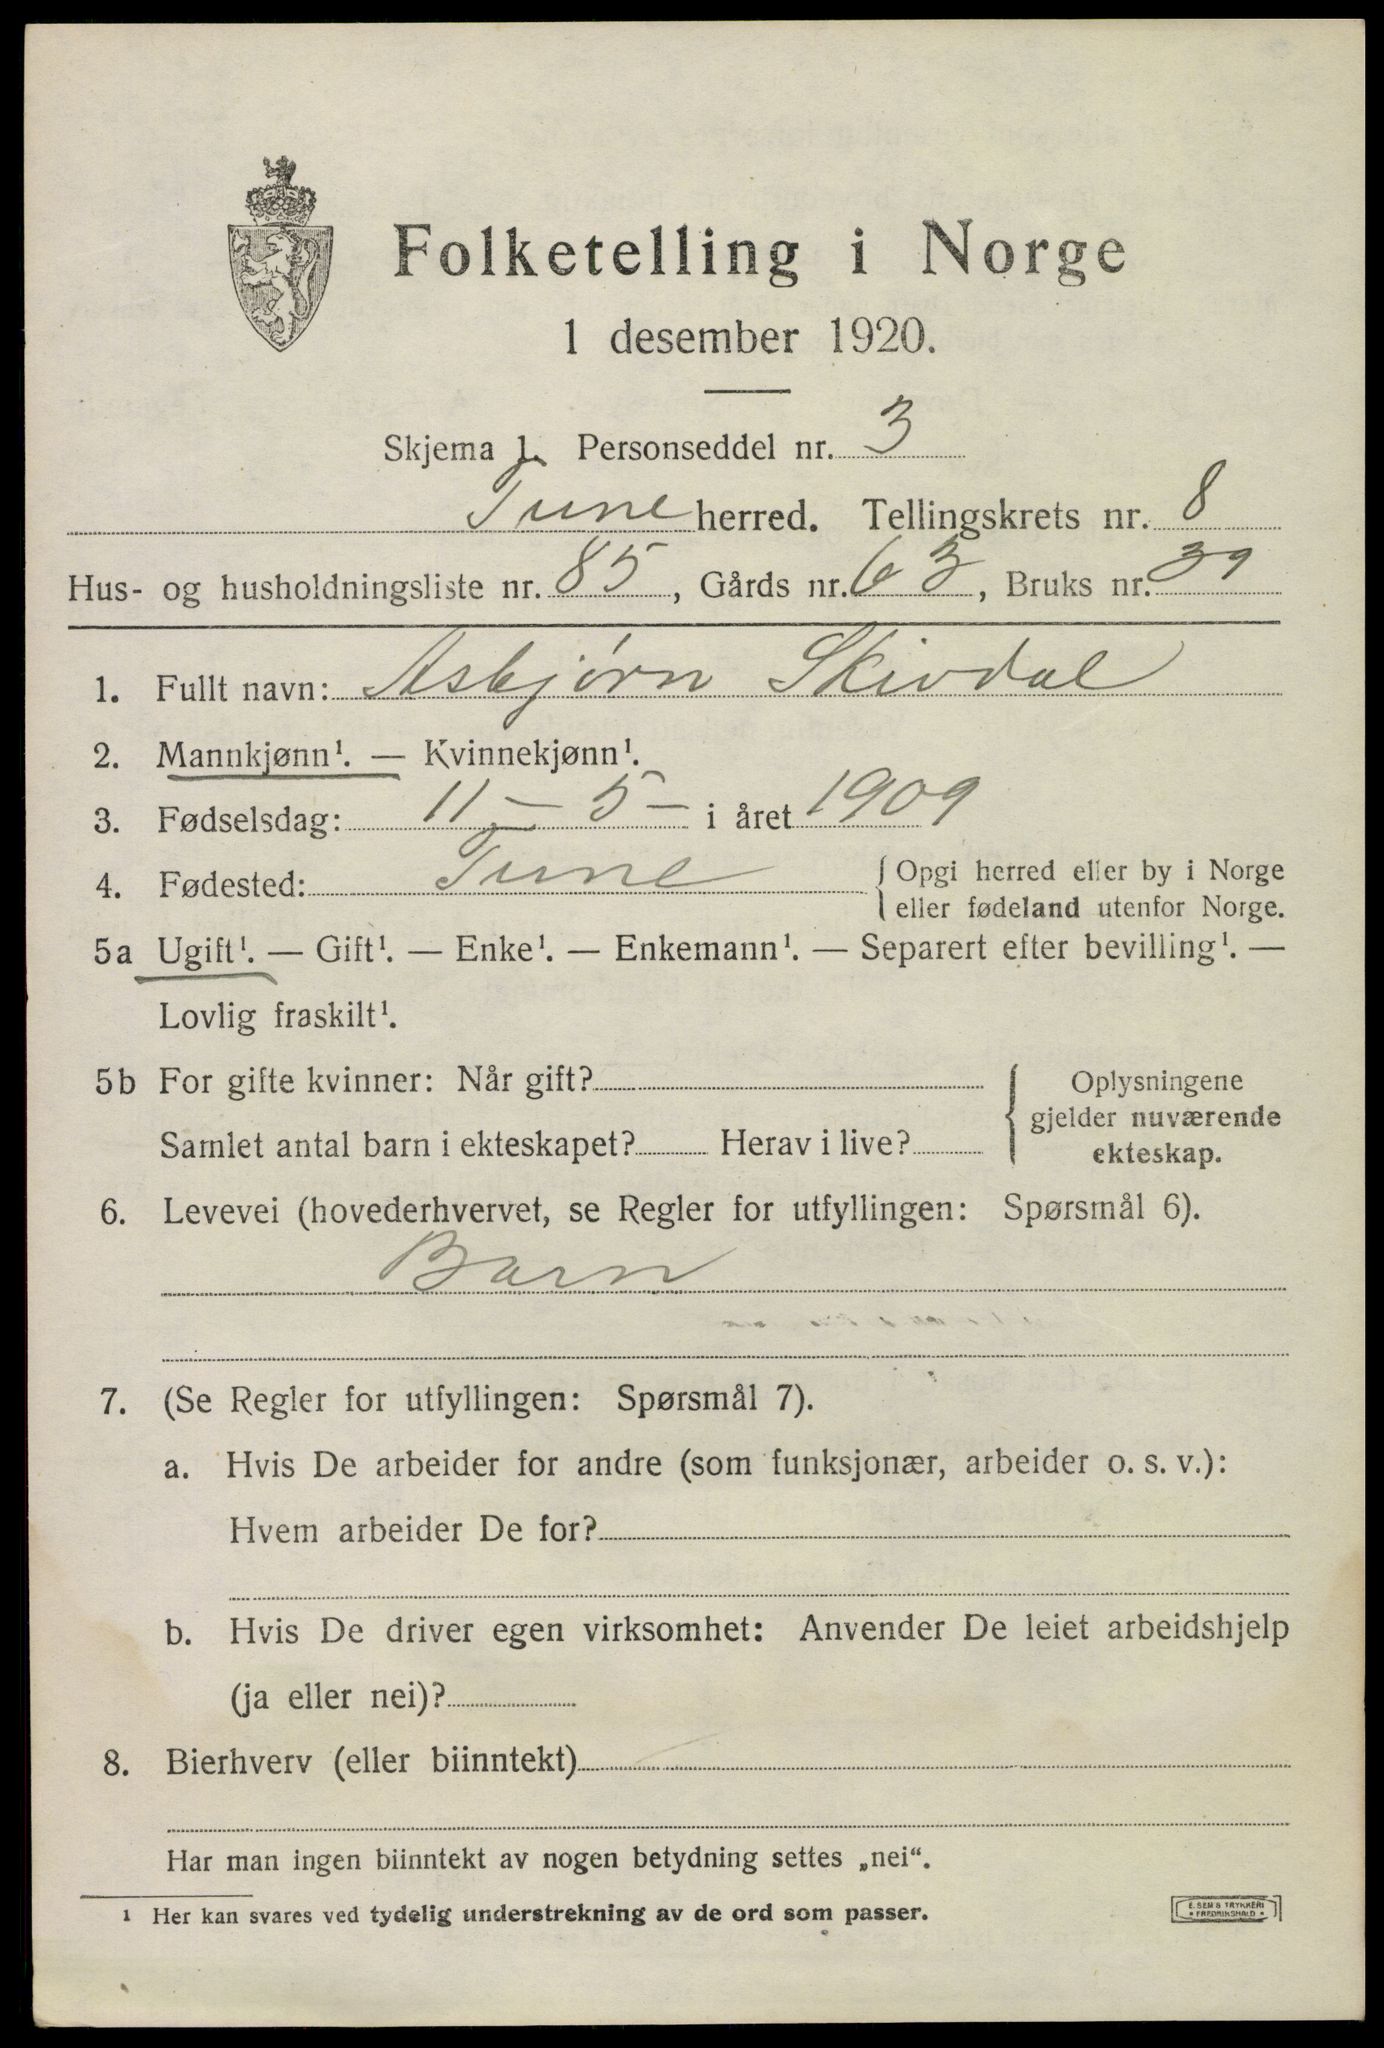 Folketelling i Norge
1 desember 1920.
Skjema 1. Personseddel nr. 3
Tune herred. Tellingskrets nr. 8
Hus- og husholdningsliste nr. 85, Gårds nr. 63, Bruks nr. 39
1. Fullt navn: Asbjørn Skivdal
2. Mannkjønn¹. — Kvinnekjønn¹.
3. Fødselsdag: 11 — 5 — i året 1909
4. Fødested: Tune {Opgi herred eller by i Norge
eller fødeland utenfor Norge.
5a Ugift¹. — Gift¹. — Enke¹. — Enkemann¹. — Separert efter bevilling¹. —
Lovlig fraskilt¹.
5b For gifte kvinner: Når gift?
Samlet antal barn i ekteskapet? Herav i live?
{Oplysningene
gjelder nuværende
ekteskap.
6. Levevei (hovederhvervet, se Regler for utfyllingen: Spørsmål 6).
Barn
7. (Se Regler for utfyllingen: Spørsmål 7).
a. Hvis De arbeider for andre (som funksjonær, arbeider o. s. v.):
Hvem arbeider De for?
b. Hvis De driver egen virksomhet: Anvender De leiet arbeidshjelp
(ja eller nei)?
8. Bierhverv (eller biinntekt)
Har man ingen biinntekt av nogen betydning settes „nei“.
¹ Her kan svares ved tydelig understrekning av de ord som passer.
E. SEM'S TRYKKERI
* FREDRIKSHALD *